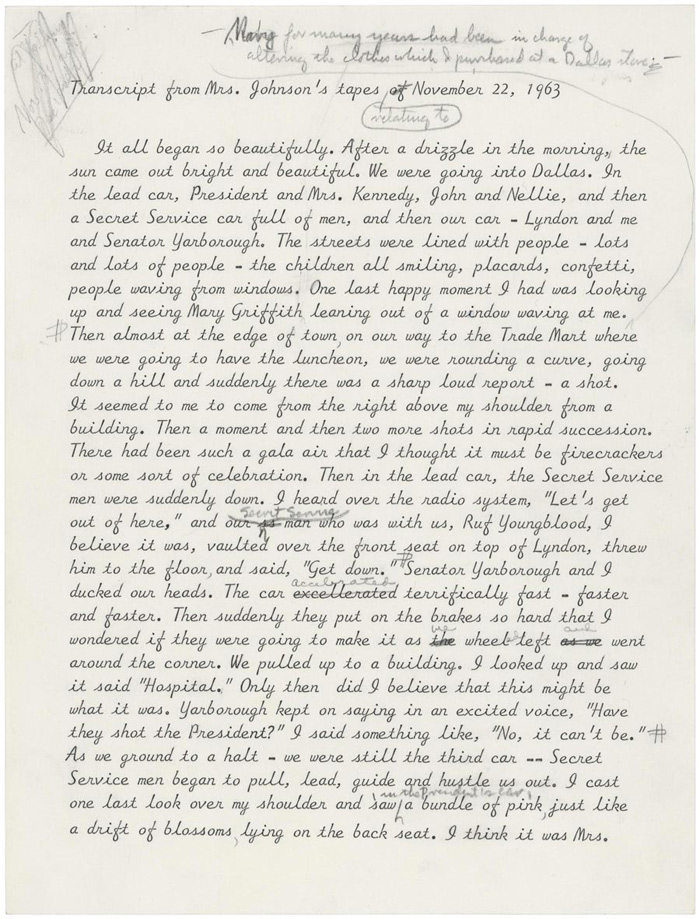 — Mary for many years had been in charge of
altering the clothes which I purchased at a Dallas store —
Transcript from Mrs. Johnson's tapes of November 22, 1963
relating to
It all began so beautifully. After a drizzle in the morning, the
sun came out bright and beautiful. We were going into Dallas. In
the lead car, President and Mrs. Kennedy, John and Nellie, and then
a Secret Service car full of men, and then our car - Lyndon and me
and Senator Yarborough. The streets were lined with people - lots
and lots of people - the children all smiling, placards, confetti,
people waving from windows. One last happy moment I had was looking
up and seeing Mary Griffith leaning out of a window waving at me.
# Then almost at the edge of town, on our way to the Trade Mart where
we were going to have the luncheon, we were rounding a curve, going
down a hill and suddenly there was a sharp loud report - a shot.
It seemed to me to come from the right above my shoulder from a
building. Then a moment and then two more shots in rapid succession.
There had been such a gala air that I thought it must be firecrackers
or some sort of celebration. Then in the lead car, the Secret Service
men were suddenly down. I heard over the radio system, "Let's get
Secret Service
out of here," and our man who was with us, Ruf Youngblood, I
believe it was, vaulted over the front seat on top of Lyndon, threw
him to the floor, and said, "Get down." # Senator Yarborough and I
accelerated
ducked our heads. The car excellerated terrifically fast - faster
and faster. Then suddenly they put on the brakes so hard that I
we and
wondered if they were going to make it as the wheel left as we went
around the corner. We pulled up to a building. I looked up and saw
it said "Hospital." Only then did I believe that this might be
what it was. Yarborough kept on saying in an excited voice, "Have
they shot the President?" I said something like, "No, it can't be." #
As we ground to a halt - we were still the third car -- Secret
Service men began to pull, lead, guide and hustle us out. I cast
in the President's car,
one last look over my shoulder and saw a bundle of pink, just like
a drift of blossoms, lying on the back seat. I think it was Mrs.